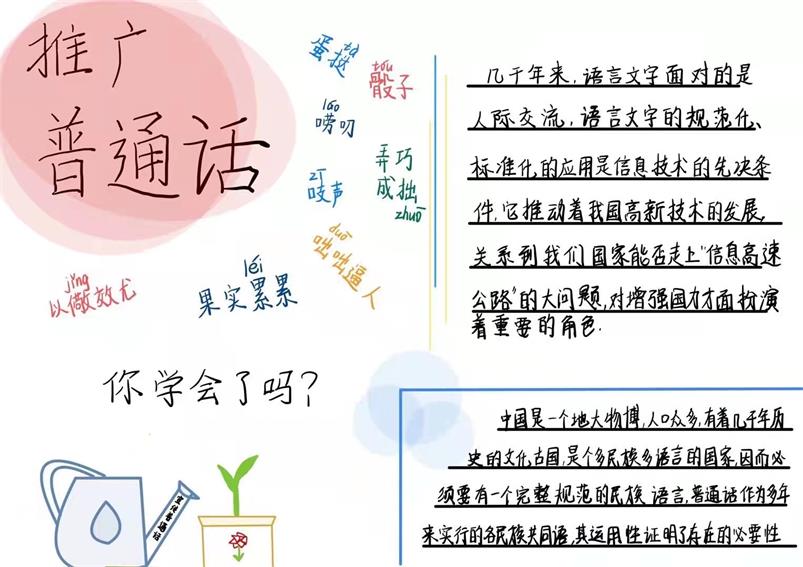 推广
普通话
tà
蛋挞
tóu
骰子
láo
唠叨
zī
吱声
弄巧
成拙
zhuō
duō
咄咄逼人
jǐng
以儆效尤
léi
果实累累
你学会了吗?
宣传普通话
几千年来,语言文字面对的是
人际交流,语言文字的规范化、
标准化的应用是信息技术的先决条
件,它推动着我国高新技术的发展,
关系到我们国家能否走上"信息高速
公路"的大问题,对增强国力才面扮演
着重要的角色.
中国是一个地大物博,人口众多,有着几千年历
史的文化古国,是个多民族多语言的国家,因而必
须要有一个完整规范的民族语言,普通话作为多年
来实行的各民族共同语,其运用性证明了存在的必要性